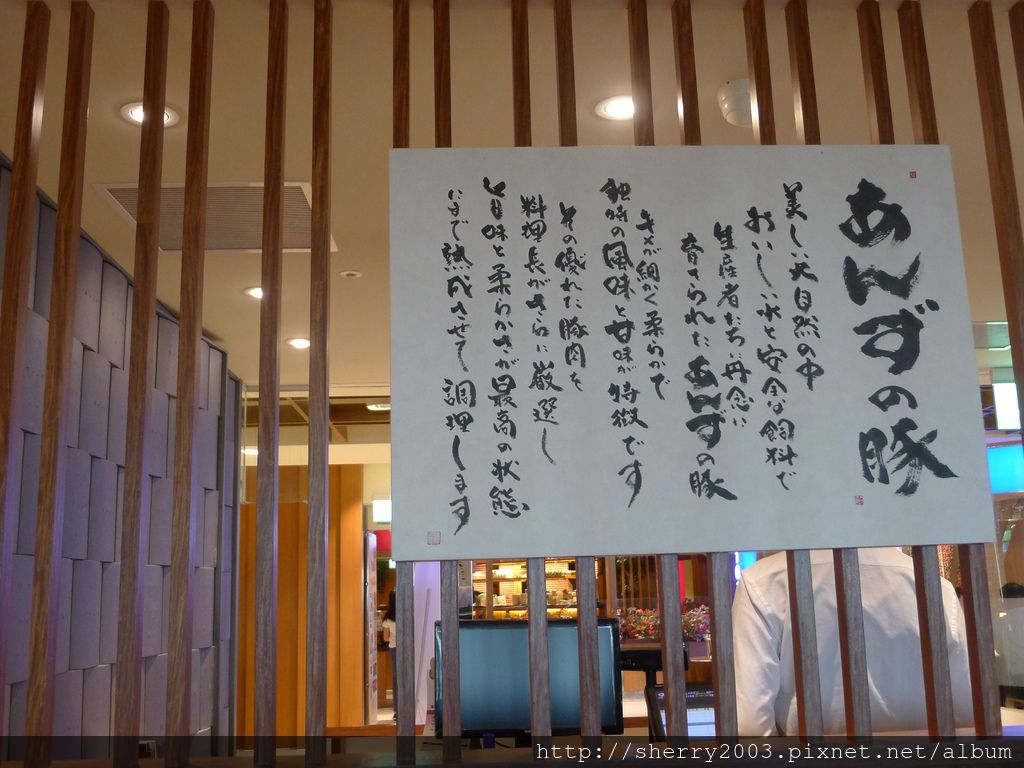 あんずの豚
美しい大自然の中
おいしい水と安全な飼料で
生産者たちが丹念に
育てられたあんずの豚
キメが細かく柔らかで
独特の風味と甘味が特徴です
その優れた豚肉を
料理長がさらに厳選し
旨味と柔らかさが最高の状態
になるまで熟成させて調理します
http://sherry2003.pixnet.net/album